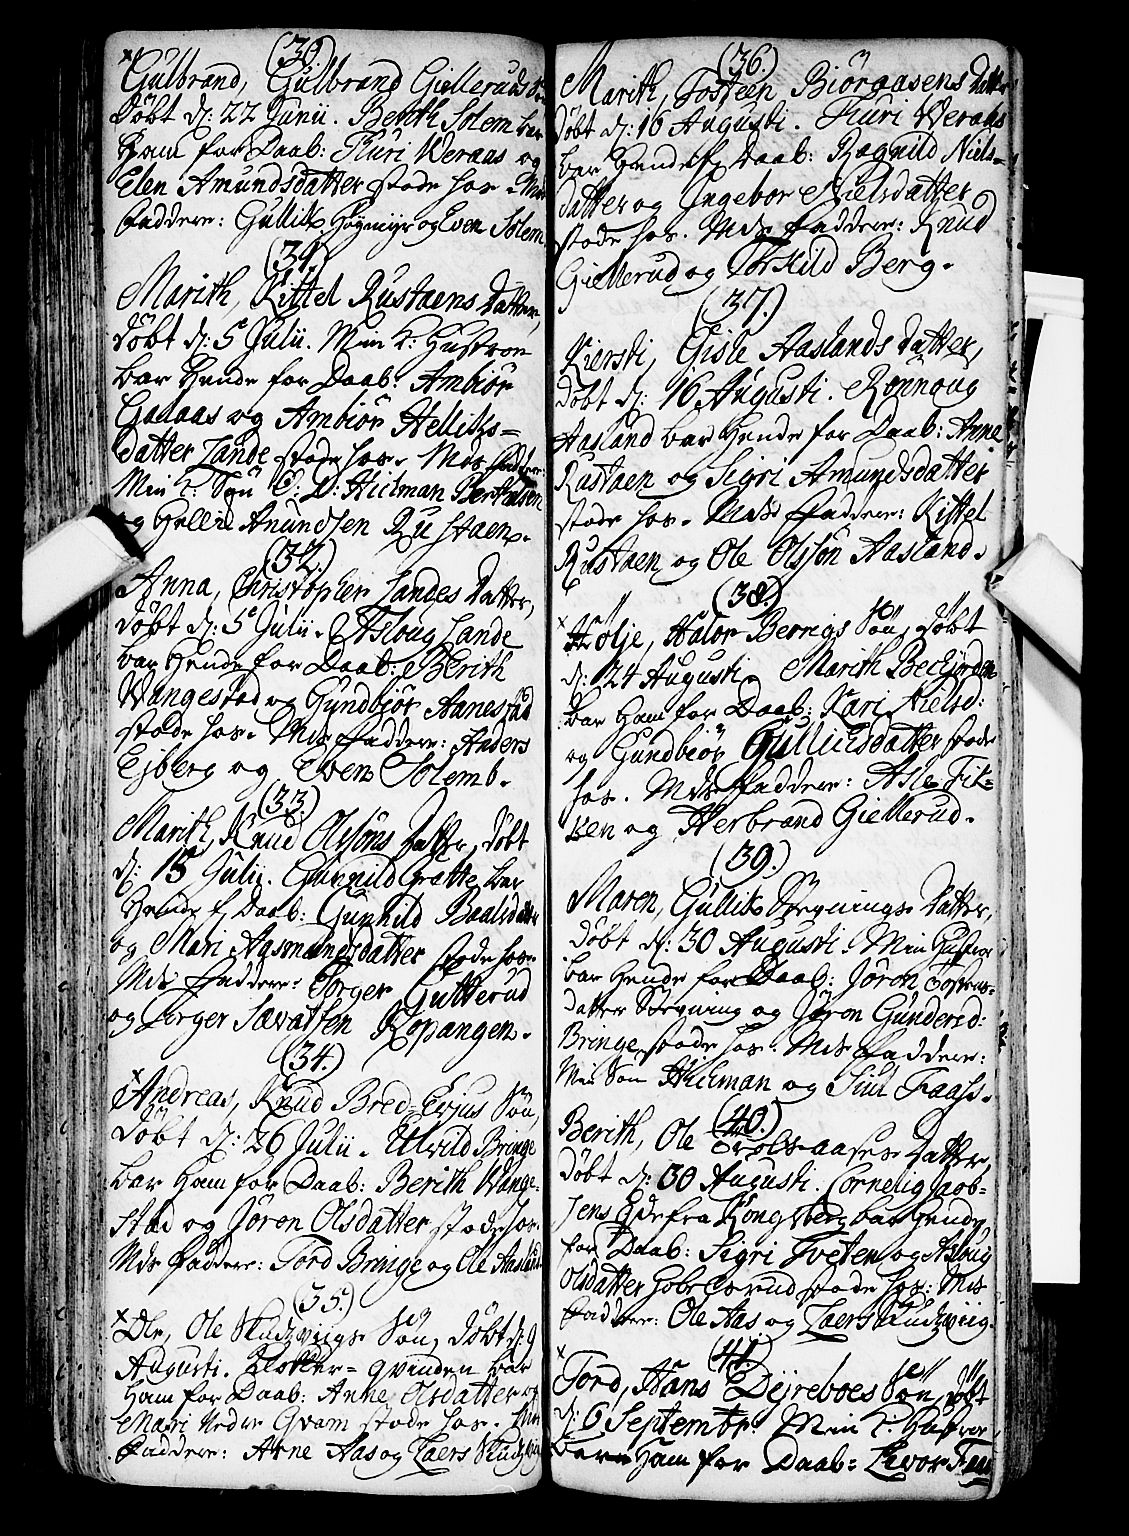 (30)
Gulbrand, Gulbrand Gielleruds Søn
Døbt d: 22 Junii. Berth Solem bar
Ham for Daab: Turi Weraas og
Elen Amundsdatter stode hos. Mds
Faddere: Gullik Høgmyr og Even Solem
(31)
Marith, Kittel Rustaens Datter,
Døbt d: 5 Julii. Min k: Hustroe
bar Hende for Daab: Ambiør
Galaas og Ambiør Helliks-
datter Lande stode hos. Mds Faddere:
Min k: Søn C: D: Hielman Berthelsen
og Hellik Anundsen Rustaen.
(32.)
Anna, Christopher Landes Datter,
Døbt d: 5 Julii. Asloug Lande
bar Hende for Daab: Berith
Wangestad og Gundbiør Aanestad
stode hos. Mds Faddere: Anders
Ejberg og Even Solemb.
(33.)
Marith, Knud Olssøns Datter, Døbt
d: 15 Julii. Gunnild Grette bar
Hende f. Daab: Gunhild Baalsdatter
og Mari Aasmundsdatter stode hos.
Mds Faddere: Torger Gutterud
og Torger Sævatsen Kopangen.
(34.)
Andreas, Knud Bred-Evjus Søn,
Døbt d: 26 Julii. Ulvild Bringe
bar Ham for Daab: Berith Wange-
stad og Jøron Olsdatter stode hos.
Mds Faddere: Tord Bringe og Ole Aasland
(35.)
Ole, Ole Skudzviigs Søn, Døbt d: 9
Augusti. Klokker-Qvinden bar
Ham for Daab: Anne Olsdatter og
Mari Nedre Qvam stode hos. Mds
Faddere: Arne Aas og Laers Skudzviig
(36.)
Marith, Tosteen Biørgaasens Datter
Døbt d: 16 Augusti. Turi Weraas
bar Hende f. Daab: Ragnild Niels-
datter og Ingebor Nielsdatter
stode hos. Mds Faddere: Knud
Giellerud og Torkild Berg.
(37.)
Kiersti, Gisle Aaslands Datter,
Døbt d: 16 Augusti. Rønnoug
Aasland bar Hende for Daab: Anne
Rustaen og Sigri Amundsdatter
stode hos. Mds Faddere: Kittel
Rustaen og Ole Olssøn Aasland.
(38.)
Hølje, Halor Bernigs Søn, Døbt
d: 24 Augusti. Marith
bar Ham for Daab: Kari Nielsd:
og Gundbiør Gulliksdatter stode
hos. Mds Faddere: Asle Fik-
ken og Herbrand Giellerud.
(39.)
Maren, Gullik Skrevnings Datter,
Døbt d: 30 Augusti. Min Hustroe
bar Hende for Daab: Jøron Tostens-
datter Skrevning og Jøron Gundersd:
Bringe stode hos. Mds Faddere:
Min Søn Hielman og Juul Faass.
(40.)
Berith, Ole Trolsaases Datter,
Døbt d: 30 Augusti. Cornelig Jacob-
sens Ede fra Kongsberg bar Hende
for Daab: Sigri Tveten og Asloug
Olsdatter stode hos: Mds
Faddere: Ole Aas og Laers Skudzviig.
(41.)
Tord, Hans Dejreboes Søn, Døbt
d: 6 Septembr: Min k: Hustroe
bar Ham for Daab: Livor Faas